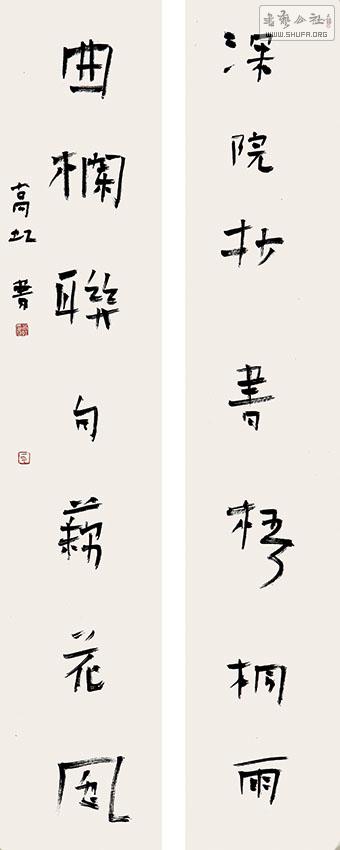 书艺公社
WWW.SHUFA.ORG
深院抄書梧桐雨
曲欄聯句藕花風
高 書